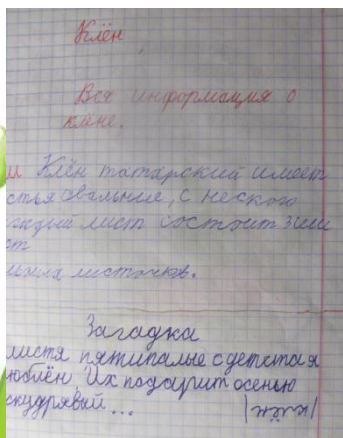 Клён
Вся информация о
клёне.
и Клён татарский имеет
стья овальные, с неского
аждый лист состоит 3 или
ст
листочков.
Загадка
листя пятипалые с детства я
юблён, Их подарит осенью
скудрявый...